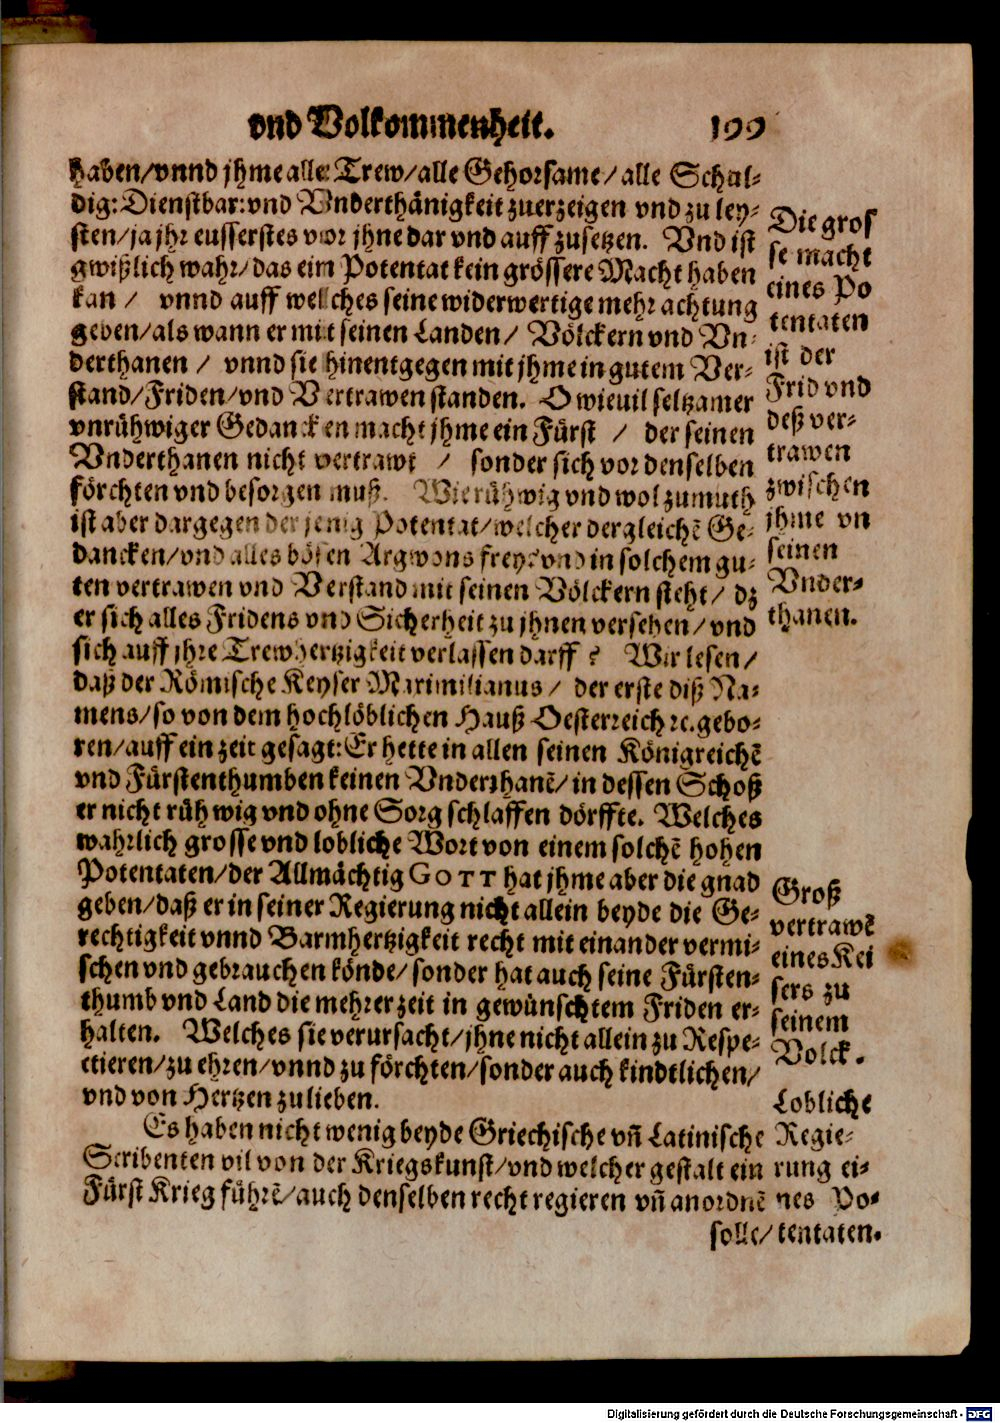 vnd Volkommenheit. 199
haben/vnnd jhme alle Trew/alle Gehorsame/alle Schul-
dig:Dienstbar:vnd Vnderthänigkeit zuerzeigen vnd zu ley-
sten/ja jhr eusserstes vor jhne dar vnd auff zusetzen. Vnd ist
gwißlich wahr/das ein Potentat kein grössere Macht haben
kan / vnnd auff welches seine widerwertige mehr achtung
geben/als wann er mit seinen Landen/ Völckern vnd Vn-
derthanen / vnnd sie hinentgegen mit jhme in gutem Ver-
stand/Friden/vnd Vertrawen standen. O wieuil seltzamer
vnrühwiger Gedancken macht jhme ein Fürst / der seinen
Vnderthanen nicht vertrawt / sonder sich vor denselben
förchten vnd besorgen muß. Wie rühwig vnd wol zumuth
ist aber dargegen der jenig Potentat/welcher dergleichē Ge-
dancken/vnd alles bösen Argwons frey? vnd in solchem gu-
ten vertrawen vnd Verstand mit seinen Völckern steht/ dz
er sich alles Fridens vnd Sicherheit zu jhnen versehen/vnd
sich auff jhre Trewhertzigkeit verlassen darff ? Wir lesen/
daß der Römische Keyser Maximilianus/ der erste diß Na-
mens/so von dem hochlöblichen Hauß Oesterreich ꝛc.gebo-
ren/auff ein zeit gesagt:Er hette in allen seinen Königreichē
vnd Fürstenthumben keinen Vnderthanē/in dessen Schoß
er nicht rühwig vnd ohne Sorg schlaffen dörffte. Welches
wahrlich grosse vnd lobliche Wort von einem solchē hohen
Potentaten/der Allmächtig GOTT hat jhme aber die gnad
geben/daß er in seiner Regierung nicht allein beyde die Ge-
rechtigkeit vnnd Barmhertzigkeit recht mit einander vermi-
schen vnd gebrauchen könde/sonder hat auch seine Fürsten-
thumb vnd Land die mehrer zeit in gewünschtem Friden er-
halten. Welches sie verursacht/jhne nicht allein zu Respe-
ctieren/zu ehren/vnnd zu förchten/sonder auch kindtlichen/
vnd von Hertzen zu lieben.
Es haben nicht wenig beyde Griechische vñ Latinische
Scribenten vil von der Kriegskunst/vnd welcher gestalt ein
Fürst Krieg führē/auch denselben recht regieren vñ anordnē
solle/
Die gros
se macht
eines Po
tentaten
ist der
Frid vnd
deß ver-
trawen
zwischen
jhme vn
seinen
Vnder-
thanen.
Groß
vertrawē
eines Kei
sers zu
seinem
Volck.
Lobliche
Regie-
rung ei-
nes Po-
tentaten.
Digitalisierung gefördert durch die Deutsche Forschungsgemeinschaft - DFG